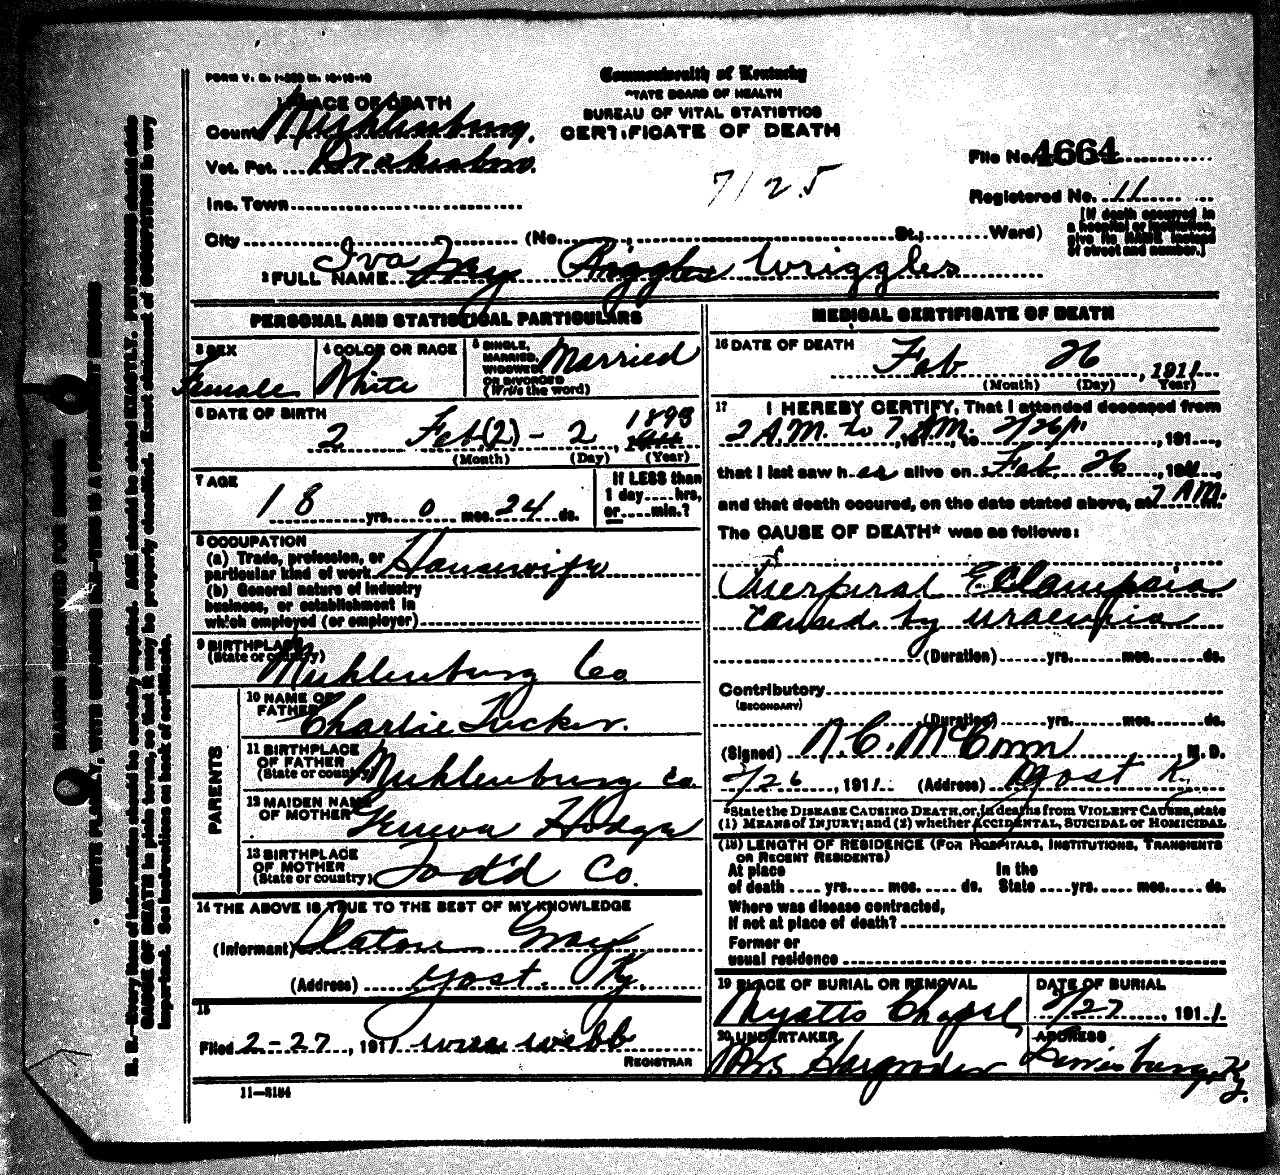 FORM V. S. 1-200 M. 10-10-10
Commonwealth of Kentucky
STATE BOARD OF HEALTH
BUREAU OF VITAL STATISTICS
CERTIFICATE OF DEATH
1 PLACE OF DEATH
County Muhlenburg.
Vot. Pct. Drakesboro.
Inc. Town
City (No. ; St.; Ward)
File No. 4664
7125
Registered No. 11
[If death occurred in
a hospital or institution,
give its NAME instead
of street and number.]
2 FULL NAME Iva May Wriggles
PERSONAL AND STATISTICAL PARTICULARS
3 SEX
Female
4 COLOR OR RACE
White
5 SINGLE,
MARRIED,
WIDOWED
OR DIVORCED
(Write the word)
Married
6 DATE OF BIRTH
2 Feb (2) - 2, 1893
(Month) (Day) (Year)
7 AGE
18 yrs. 0 mos. 24 ds.
If LESS than
1 day....hrs,
or....min.?
8 OCCUPATION
(a) Trade, profession, or
particular kind of work Housewife
(b) General nature of industry
business, or establishment in
which employed (or employer)
9 BIRTHPLACE
(State or country)
Muhlenburg Co
PARENTS
10 NAME OF
FATHER
Charlie Tucker.
11 BIRTHPLACE
OF FATHER
(State or country)
Muhlenburg Co.
12 MAIDEN NAME
OF MOTHER
Geneva Hodge
13 BIRTHPLACE
OF MOTHER
(State or country)
Todd Co.
14 THE ABOVE IS TRUE TO THE BEST OF MY KNOWLEDGE
(Informant) Slaton Gray
(Address) Yost. Ky.
15
Filed 2-27, 1911 Webb
REGISTRAR
11-3184
MEDICAL CERTIFICATE OF DEATH
16 DATE OF DEATH
Feb 26, 1911
(Month) (Day) Year)
17 I HEREBY CERTIFY, That I attended deceased from
2 A.M. to 7 A.M., 191, to 2/26/11, 191...,
that I last saw h er alive on Feb 26, 1911,
and that death occured, on the date stated above, at 7 AM.
The CAUSE OF DEATH* was as follows:
Puerperal Eclampsia
caused by uraemia
(Duration) yrs. mos. ds.
Contributory
(SECONDARY)
(Duration) yrs. mos. ds.
(Signed) , M. D.
2/26, 1911. (Address) Yost K.
*State the DISEASE CAUSING DEATH, or, in deaths from VIOLENT CAUSES, state
(1) MEANS of INJURY; and (2) whether ACCIDENTAL, SUICIDAL or HOMICIDAL
(18) LENGTH OF RESIDENCE (FOR HOSPITALS, INSTITUTIONS, TRANSIENTS
OR RECENT RESIDENTS)
At place In the
of death .... yrs..... mos. .... ds. State ....yrs..... mos..... ds.
Where was disease contracted,
If not at place of death?
Former or
usual residence
19 PLACE OF BURIAL OR REMOVAL
Myatts Chapel
DATE OF BURIAL
2/27, 1911.
20 UNDERTAKER
ADDRESS
Ky.
MARGIN RESERVED FOR BINDING
WRITE PLAINLY, WITH UNFADING INK—THIS IS A PERMANENT RECORD
N. B.—Every item of information should be carefully supplied. AGE should be stated EXACTLY. PHYSICIANS should state
CAUSE OF DEATH in plain terms, so that it may be properly classified. Exact statement of OCCUPATION is very
important. See instructions on back of certificate.